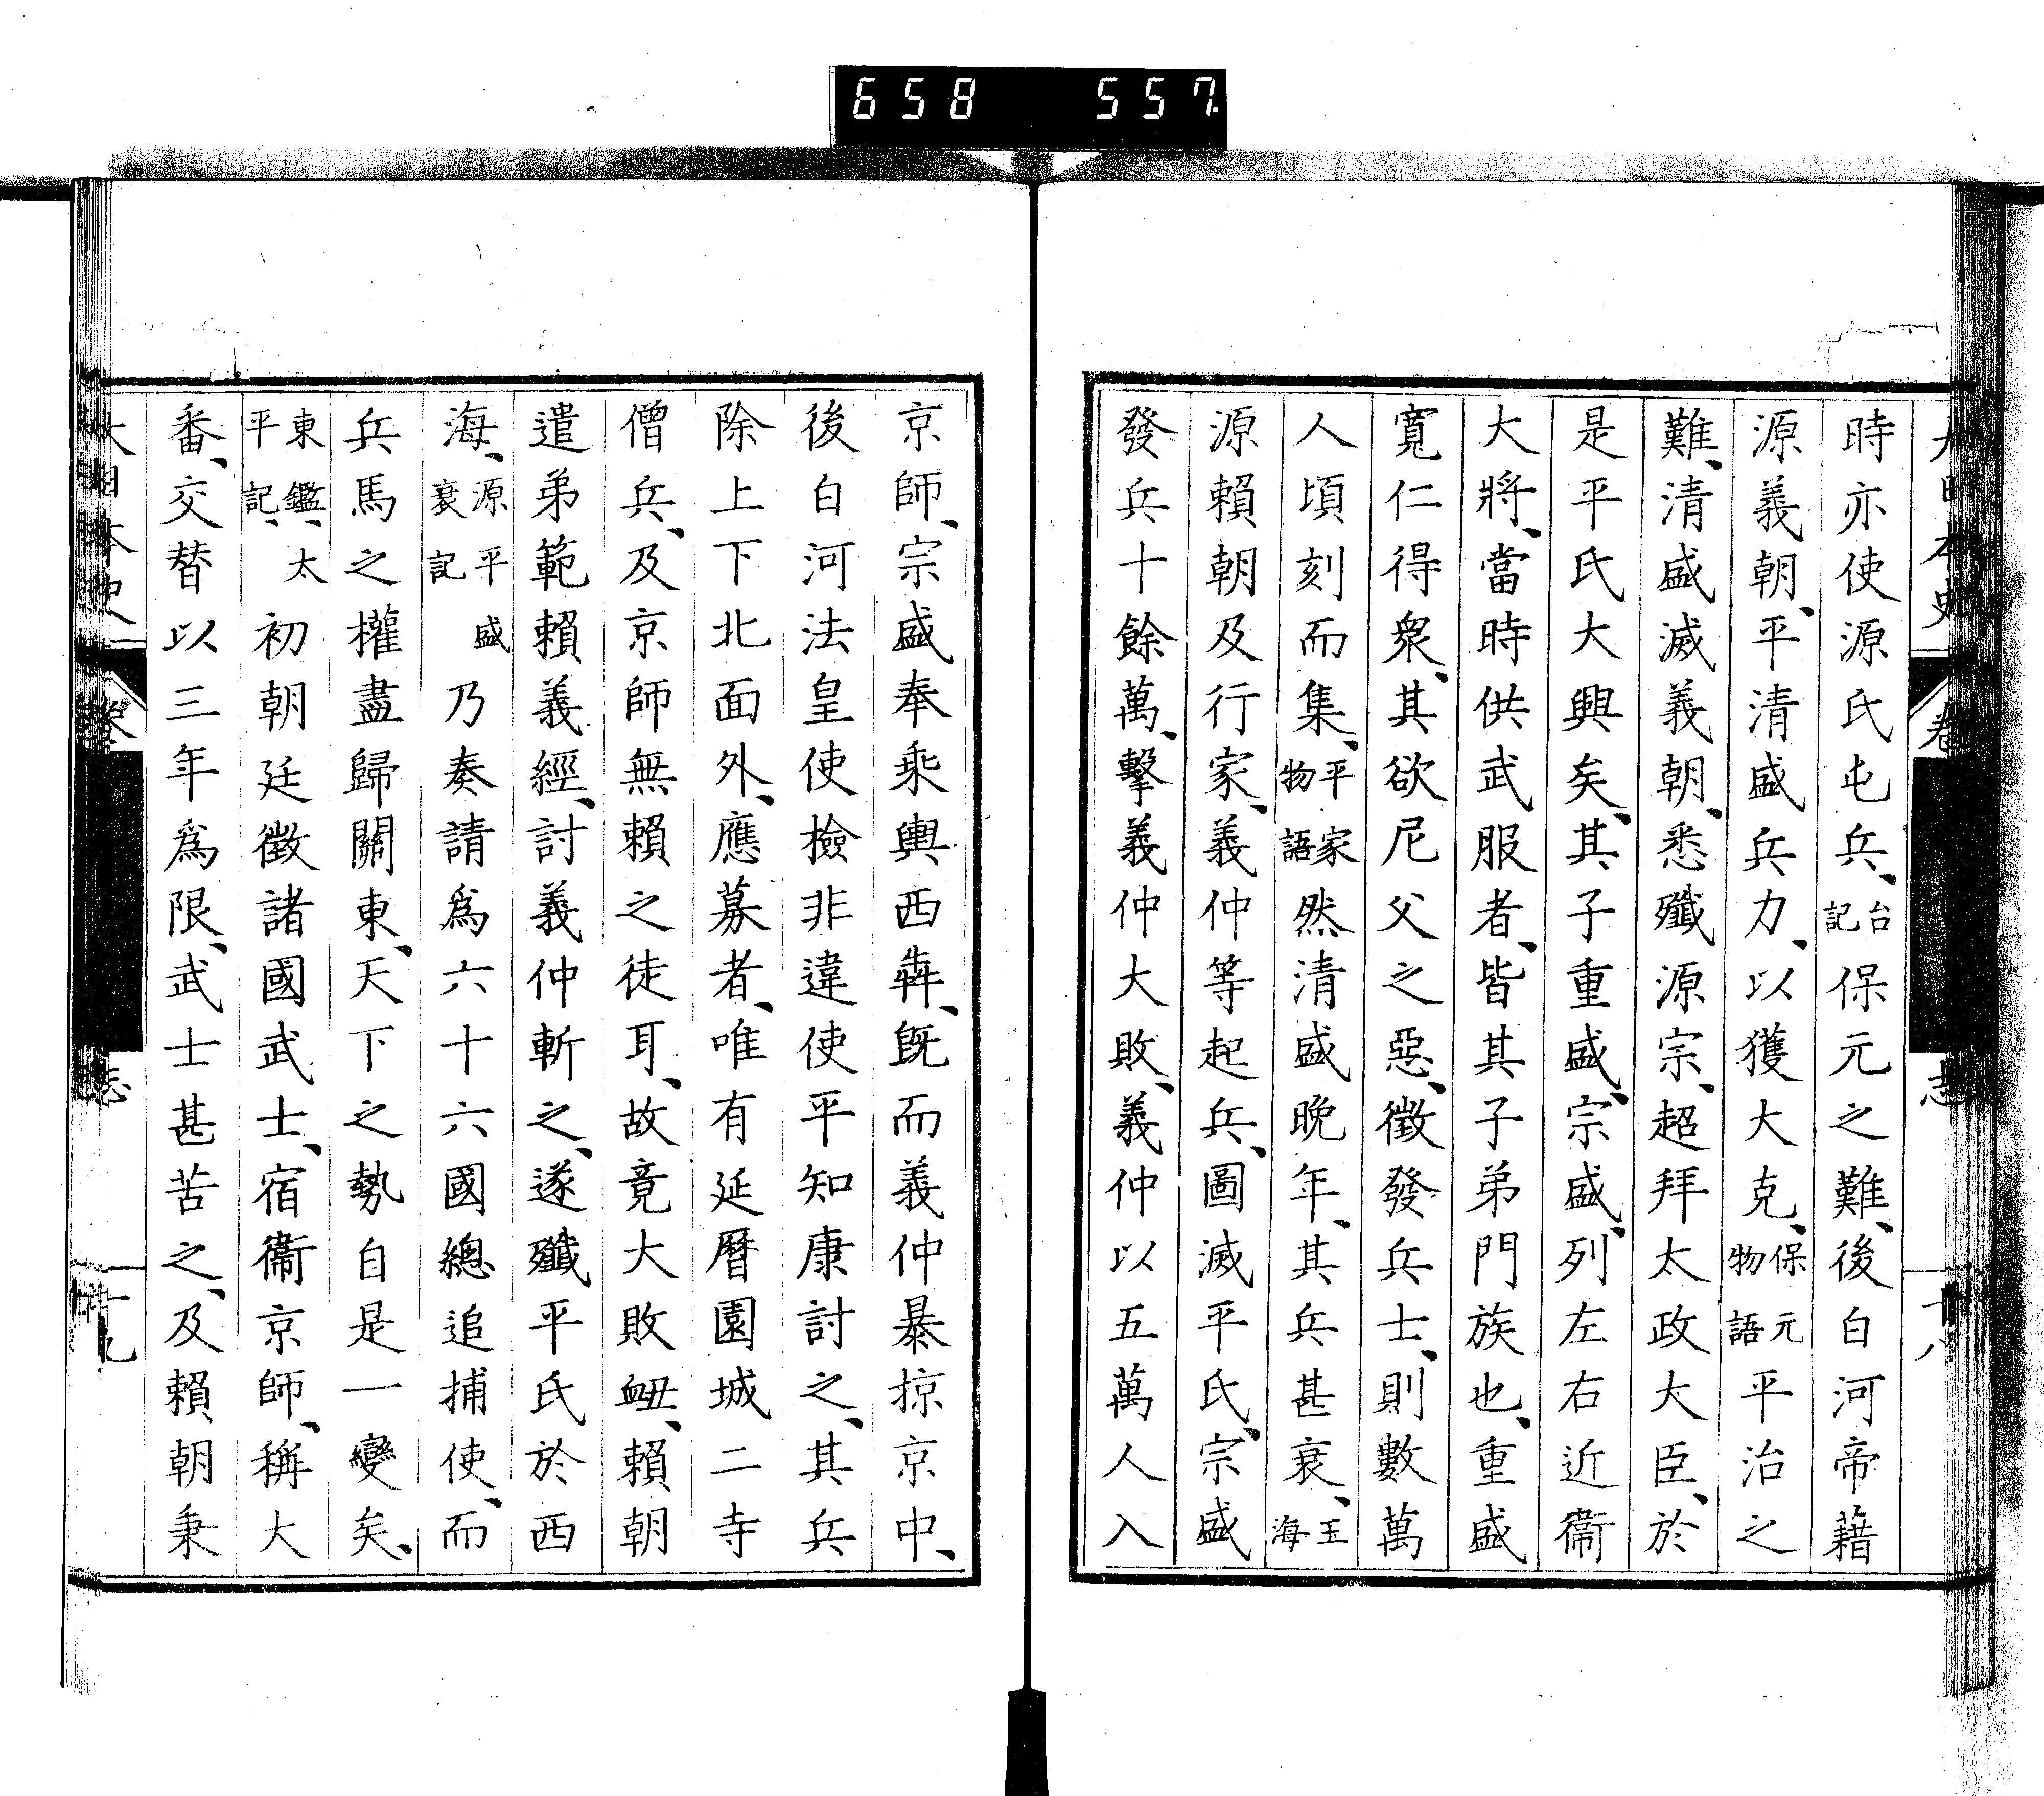 658 557
大日本史 卷 志 十八
時亦使源氏屯兵、台記保元之難、後白河帝藉
源義朝、平清盛兵力、以獲大克、保元物語平治之
難、清盛滅義朝、悉殲源宗、超拜太政大臣、於
是平氏大興矣、其子重盛、宗盛、列左右近衞
大將、當時供武服者、皆其子弟門族也、重盛
寬仁得衆、其欲尼父之惡、徵發兵士、則數萬
人頃刻而集、平家物語然清盛晚年、其兵甚衰、玉海
源賴朝及行家、義仲等起兵、圖滅平氏、宗盛
發兵十餘萬、擊義仲大敗、義仲以五萬人入
京師、宗盛奉乘輿西犇、既而義仲暴掠京中、
後白河法皇使檢非違使平知康討之、其兵
除上下北面外、應募者、唯有延曆園城二寺
僧兵、及京師無賴之徒耳、故竟大敗衄、賴朝
遣弟範賴義經、討義仲斬之、遂殲平氏於西
海、源平盛衰記乃奏請爲六十六國總追捕使、而
兵馬之權盡歸關東、天下之勢自是一變矣、
東鑑、太平記、初朝廷徵諸國武士、宿衞京師、稱大
番、交替以三年爲限、武士甚苦之、及賴朝秉
大日本史 卷 志 十九